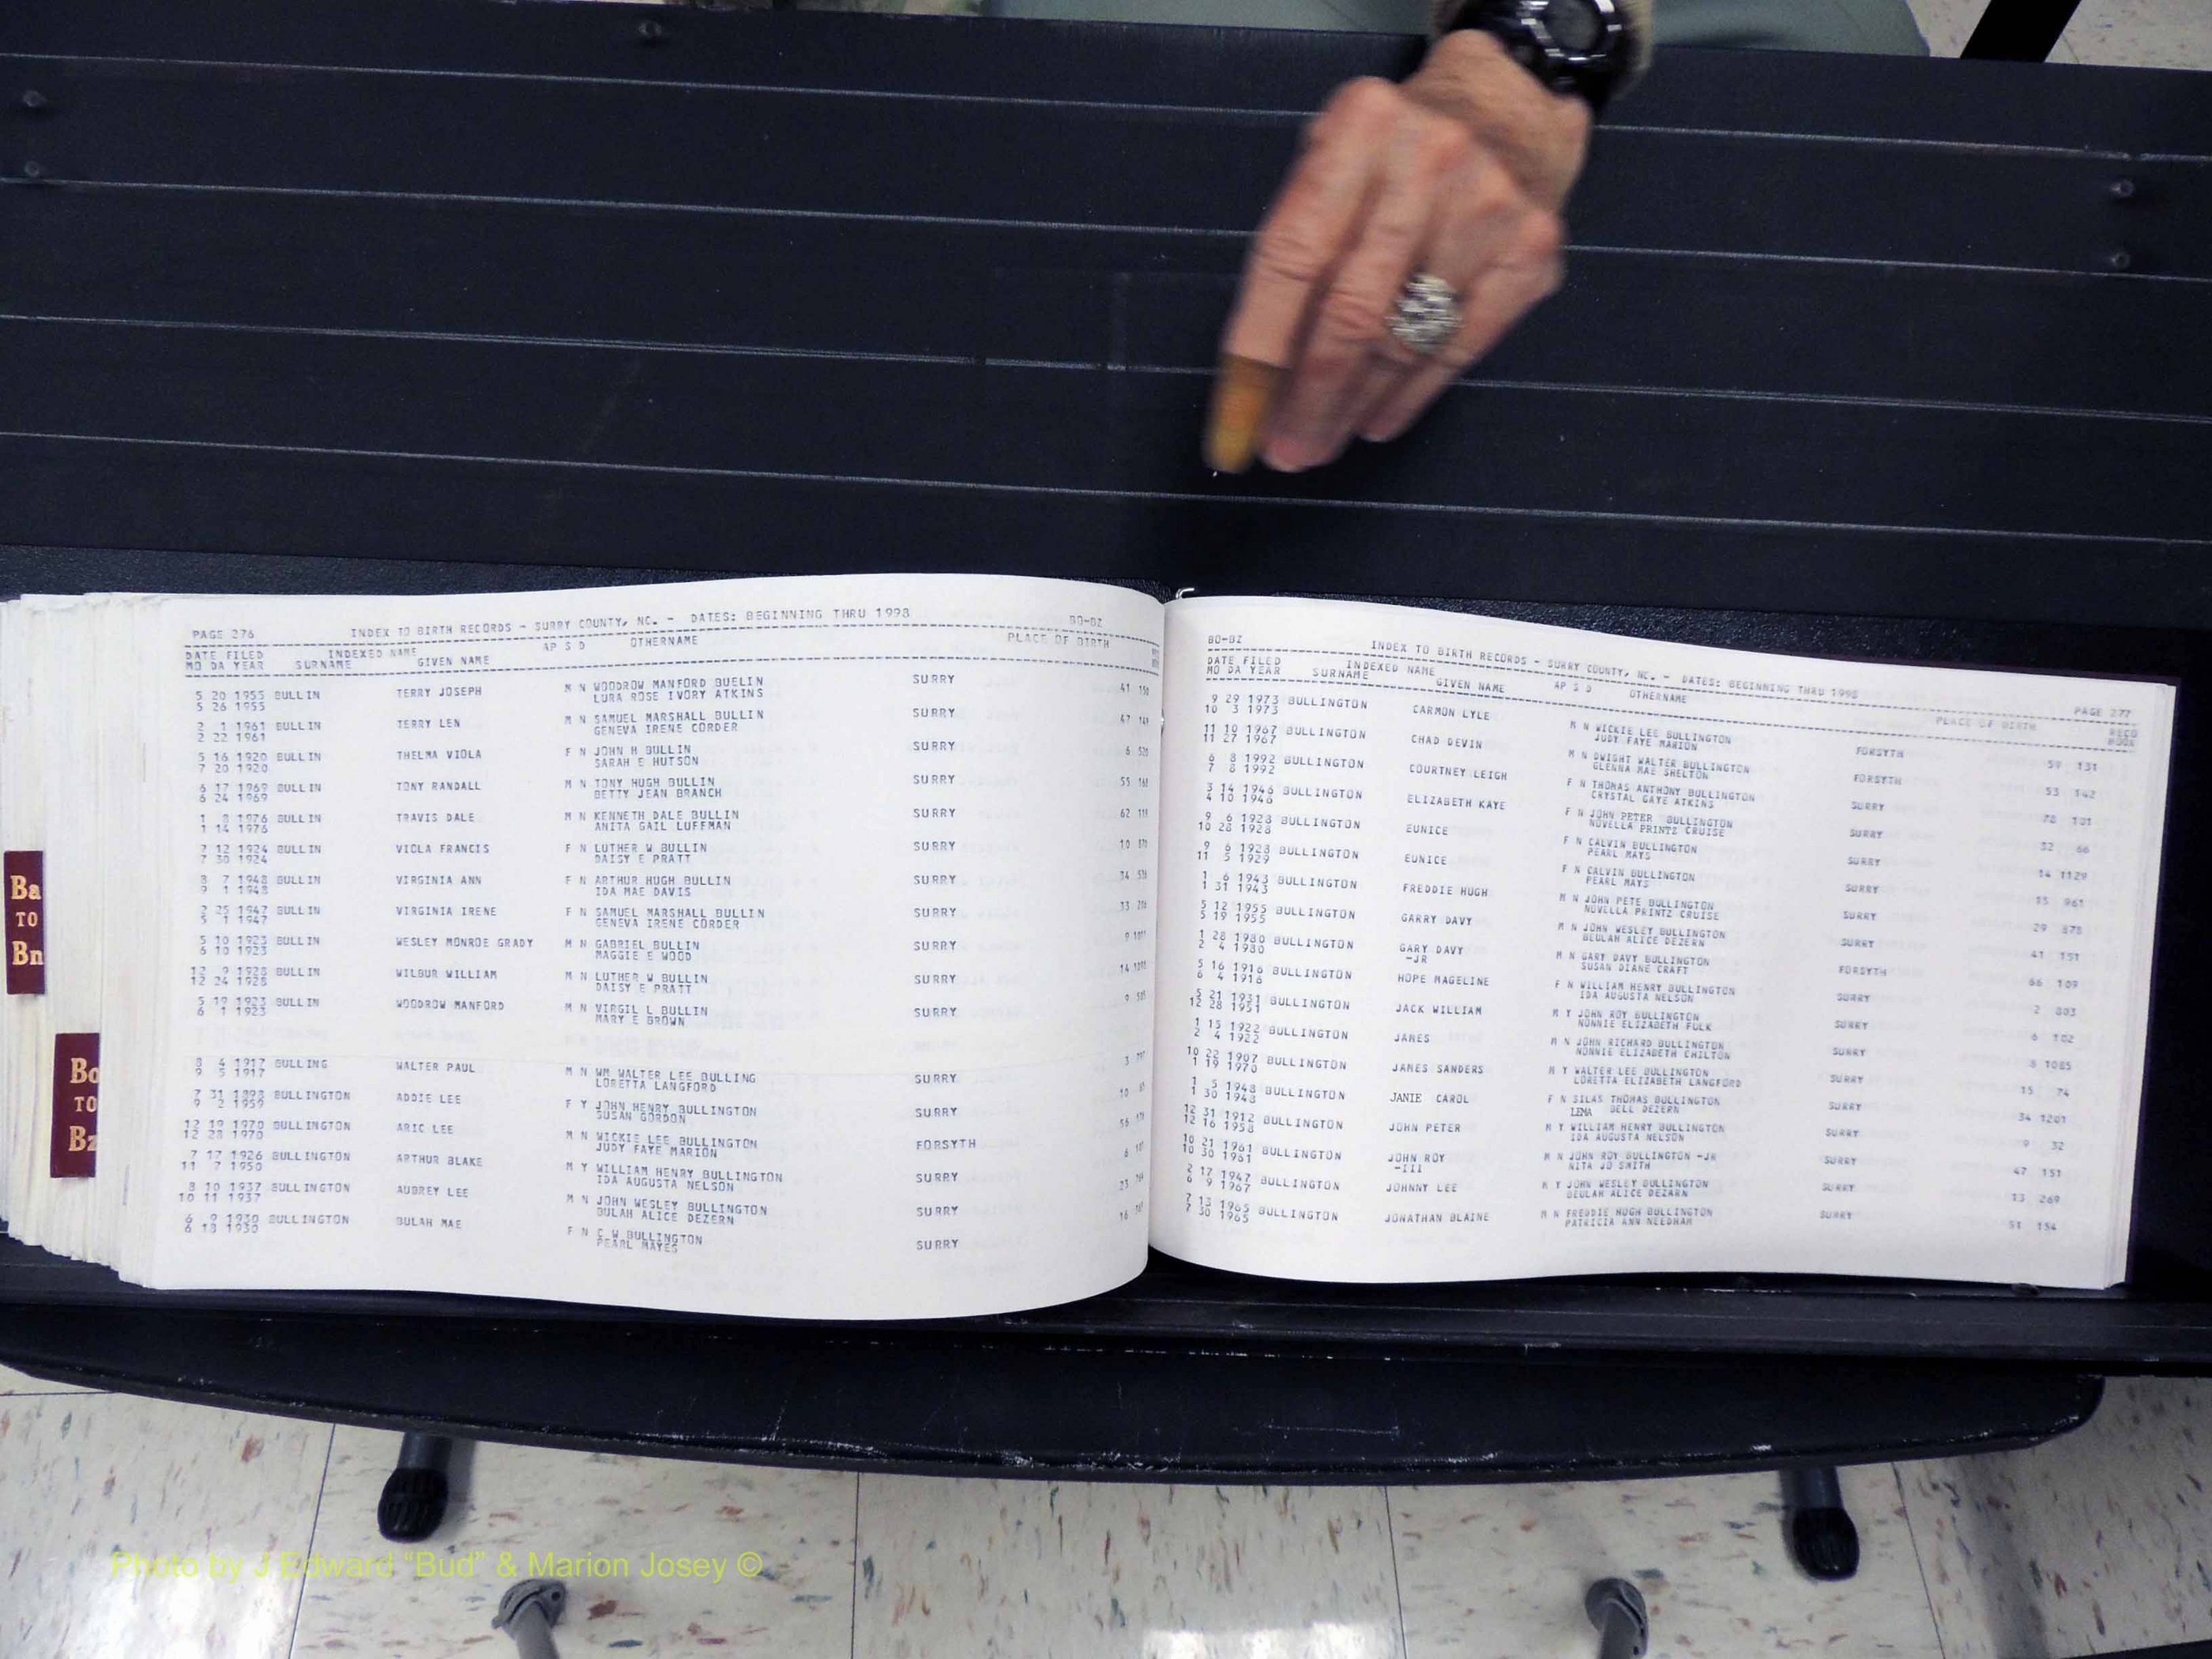 PAGE 276 INDEX TO BIRTH RECORDS - SURRY COUNTY, NC. - DATES: BEGINNING THRU 1998 BO-BZ
DATE FILED INDEXED NAME AP S D OTHERNAME PLACE OF BIRTH
MO DA YEAR SURNAME GIVEN NAME
5 20 1955 BULLIN TERRY JOSEPH M N WOODROW MANFORD BUELIN SURRY 41 150
5 26 1955 LURA ROSE IVORY ATKINS
2 1 1961 BULLIN TERRY LEN M N SAMUEL MARSHALL BULLIN SURRY 47 141
2 22 1961 GENEVA IRENE CORDER
5 16 1920 BULLIN THELMA VIOLA F N JOHN H BULLIN SURRY 6
7 20 1920 SARAH E HUTSON
6 17 1969 BULLIN TONY RANDALL M N TONY HUGH BULLIN SURRY 55
6 24 1969 BETTY JEAN BRANCH
1 8 1976 BULLIN TRAVIS DALE M N KENNETH DALE BULLIN SURRY 62
1 14 1976 ANITA GAIL LUFFMAN
7 12 1924 BULLIN VIOLA FRANCIS F N LUTHER W BULLIN SURRY 10
7 30 1924 DAISY E PRATT
8 7 1948 BULLIN VIRGINIA ANN F N ARTHUR HUGH BULLIN SURRY 34
9 1 1948 IDA MAE DAVIS
2 25 1947 BULLIN VIRGINIA IRENE F N SAMUEL MARSHALL BULLIN SURRY 33
5 1 1947 GENEVA IRENE CORDER
5 10 1923 BULLIN WESLEY MONROE GRADY M N GABRIEL BULLIN SURRY 9
6 10 1923 MAGGIE E WOOD
12 9 1928 BULLIN WILBUR WILLIAM M N LUTHER W BULLIN SURRY 14
12 24 1928 DAISY E PRATT
5 19 1923 BULLIN WOODROW MANFORD M N VIRGIL L BULLIN SURRY 9
6 1 1923 MARY E BROWN
8 4 1917 BULLING WALTER PAUL M N WM WALTER LEE BULLING SURRY 3
9 5 1917 LORETTA LANGFORD
7 31 1898 BULLINGTON ADDIE LEE F Y JOHN HENRY BULLINGTON SURRY 10
9 2 1959 SUSAN GORDON
12 19 1970 BULLINGTON ARIC LEE M N WICKIE LEE BULLINGTON FORSYTH 56
12 28 1970 JUDY FAYE MARION
7 17 1926 BULLINGTON ARTHUR BLAKE M Y WILLIAM HENRY BULLINGTON SURRY 6
11 7 1950 IDA AUGUSTA NELSON
8 10 1937 BULLINGTON AUBREY LEE M N JOHN WESLEY BULLINGTON SURRY 23
10 11 1937 BULAH ALICE DEZERN
6 9 1930 BULLINGTON BULAH MAE F N C W BULLINGTON SURRY 16
6 18 1930 PEARL MAYES
BO-BZ INDEX TO BIRTH RECORDS - SURRY COUNTY, NC. - DATES: BEGINNING THRU 1998 PAGE 277
DATE FILED INDEXED NAME AP S D OTHERNAME PLACE OF BIRTH RECO
MO DA YEAR SURNAME GIVEN NAME BOOK
9 29 1973 BULLINGTON CARMON LYLE M N WICKIE LEE BULLINGTON FORSYTH 59 131
10 3 1973 JUDY FAYE MARION
11 10 1967 BULLINGTON CHAD DEVIN M N DWIGHT WALTER BULLINGTON FORSYTH 53 142
11 27 1967 GLENNA MAE SHELTON
6 8 1992 BULLINGTON COURTNEY LEIGH F N THOMAS ANTHONY BULLINGTON SURRY 78 101
7 8 1992 CRYSTAL GAYE ATKINS
3 14 1946 BULLINGTON ELIZABETH KAYE F N JOHN PETER BULLINGTON SURRY 32 66
4 10 1946 NOVELLA PRINTZ CRUISE
9 6 1928 BULLINGTON EUNICE F N CALVIN BULLINGTON SURRY 14 1129
10 28 1928 PEARL MAYS
9 6 1928 BULLINGTON EUNICE F N CALVIN BULLINGTON SURRY 15 961
11 5 1929 PEARL MAYS
1 6 1943 BULLINGTON FREDDIE HUGH M N JOHN PETE BULLINGTON SURRY 29 878
1 31 1943 NOVELLA PRINTZ CRUISE
5 12 1955 BULLINGTON GARRY DAVY M N JOHN WESLEY BULLINGTON SURRY 41 151
5 19 1955 BEULAH ALICE DEZERN
1 28 1980 BULLINGTON GARY DAVY M N GARY DAVY BULLINGTON FORSYTH 66 109
2 4 1980 -JR SUSAN DIANE CRAFT
5 16 1916 BULLINGTON HOPE MAGELINE F N WILLIAM HENRY BULLINGTON SURRY 2 803
6 4 1916 IDA AUGUSTA NELSON
5 21 1931 BULLINGTON JACK WILLIAM M Y JOHN ROY BULLINGTON SURRY 6 102
12 28 1951 NONNIE ELIZABETH FULK
1 15 1922 BULLINGTON JAMES M N JOHN RICHARD BULLINGTON SURRY 8 1085
2 4 1922 NONNIE ELIZABETH CHILTON
10 22 1907 BULLINGTON JAMES SANDERS M Y WALTER LEE BULLINGTON SURRY 15 74
1 19 1970 LORETTA ELIZABETH LANGFORD
1 5 1948 BULLINGTON JANIE CAROL F N SILAS THOMAS BULLINGTON SURRY 34 1201
1 30 1948 LEMA BELL DEZERN
12 31 1912 BULLINGTON JOHN PETER M Y WILLIAM HENRY BULLINGTON SURRY 9 32
12 16 1958 IDA AUGUSTA NELSON
10 21 1961 BULLINGTON JOHN ROY M N JOHN ROY BULLINGTON -JR SURRY 47 151
10 30 1961 -III NITA JO SMITH
2 17 1947 BULLINGTON JOHNNY LEE M Y JOHN WESLEY BULLINGTON SURRY 13 269
6 9 1967 BEULAH ALICE DEZARN
7 13 1965 BULLINGTON JONATHAN BLAINE M N FREDDIE HUGH BULLINGTON SURRY 51 154
7 30 1965 PATRICIA ANN NEEDHAM
Ba
TO
Bn
Bo
TO
Bz
Photo by J Edward "Bud" & Marion Josey ©